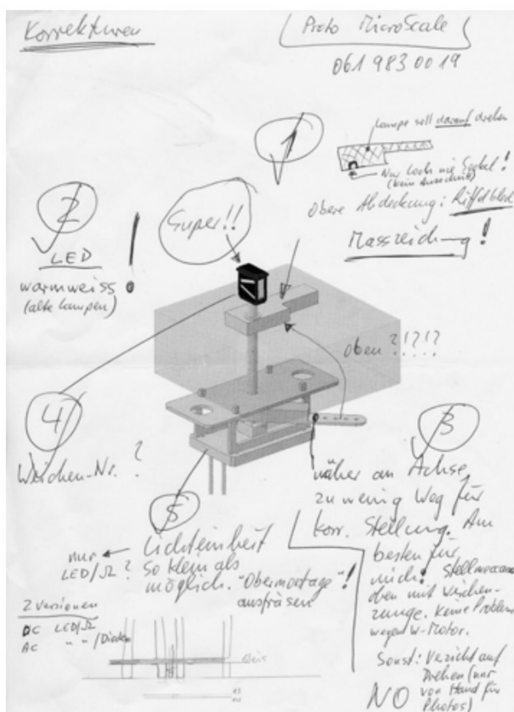 Korrekturen
Proto MicroScale
061 983 00 19
1
Lampe soll darauf drehen
Nur Loch wie Sockel!
obere Abdeckung: Riffelblech
Masszeichnung!
2
LED
warmweiss!
(alte Lampen)
Super!!
oben ?!?!?
4
Weichen-Nr.?
3
näher an Achse,
zu wenig Weg für
korr. Stellung. Am
besten für
mich:
oben mit Weichen-
zunge. Keine Probleme
wegen W-Motor.
Sonst: Verzicht auf
Drehen (nur
von Hand für
Photos)
NO
5
Lichteinheit
so klein als
möglich. "Obermontage"!
ausfräsen
nur
LED/Ω?
2 Versionen
DC LED/Ω
AC " " /Dioden